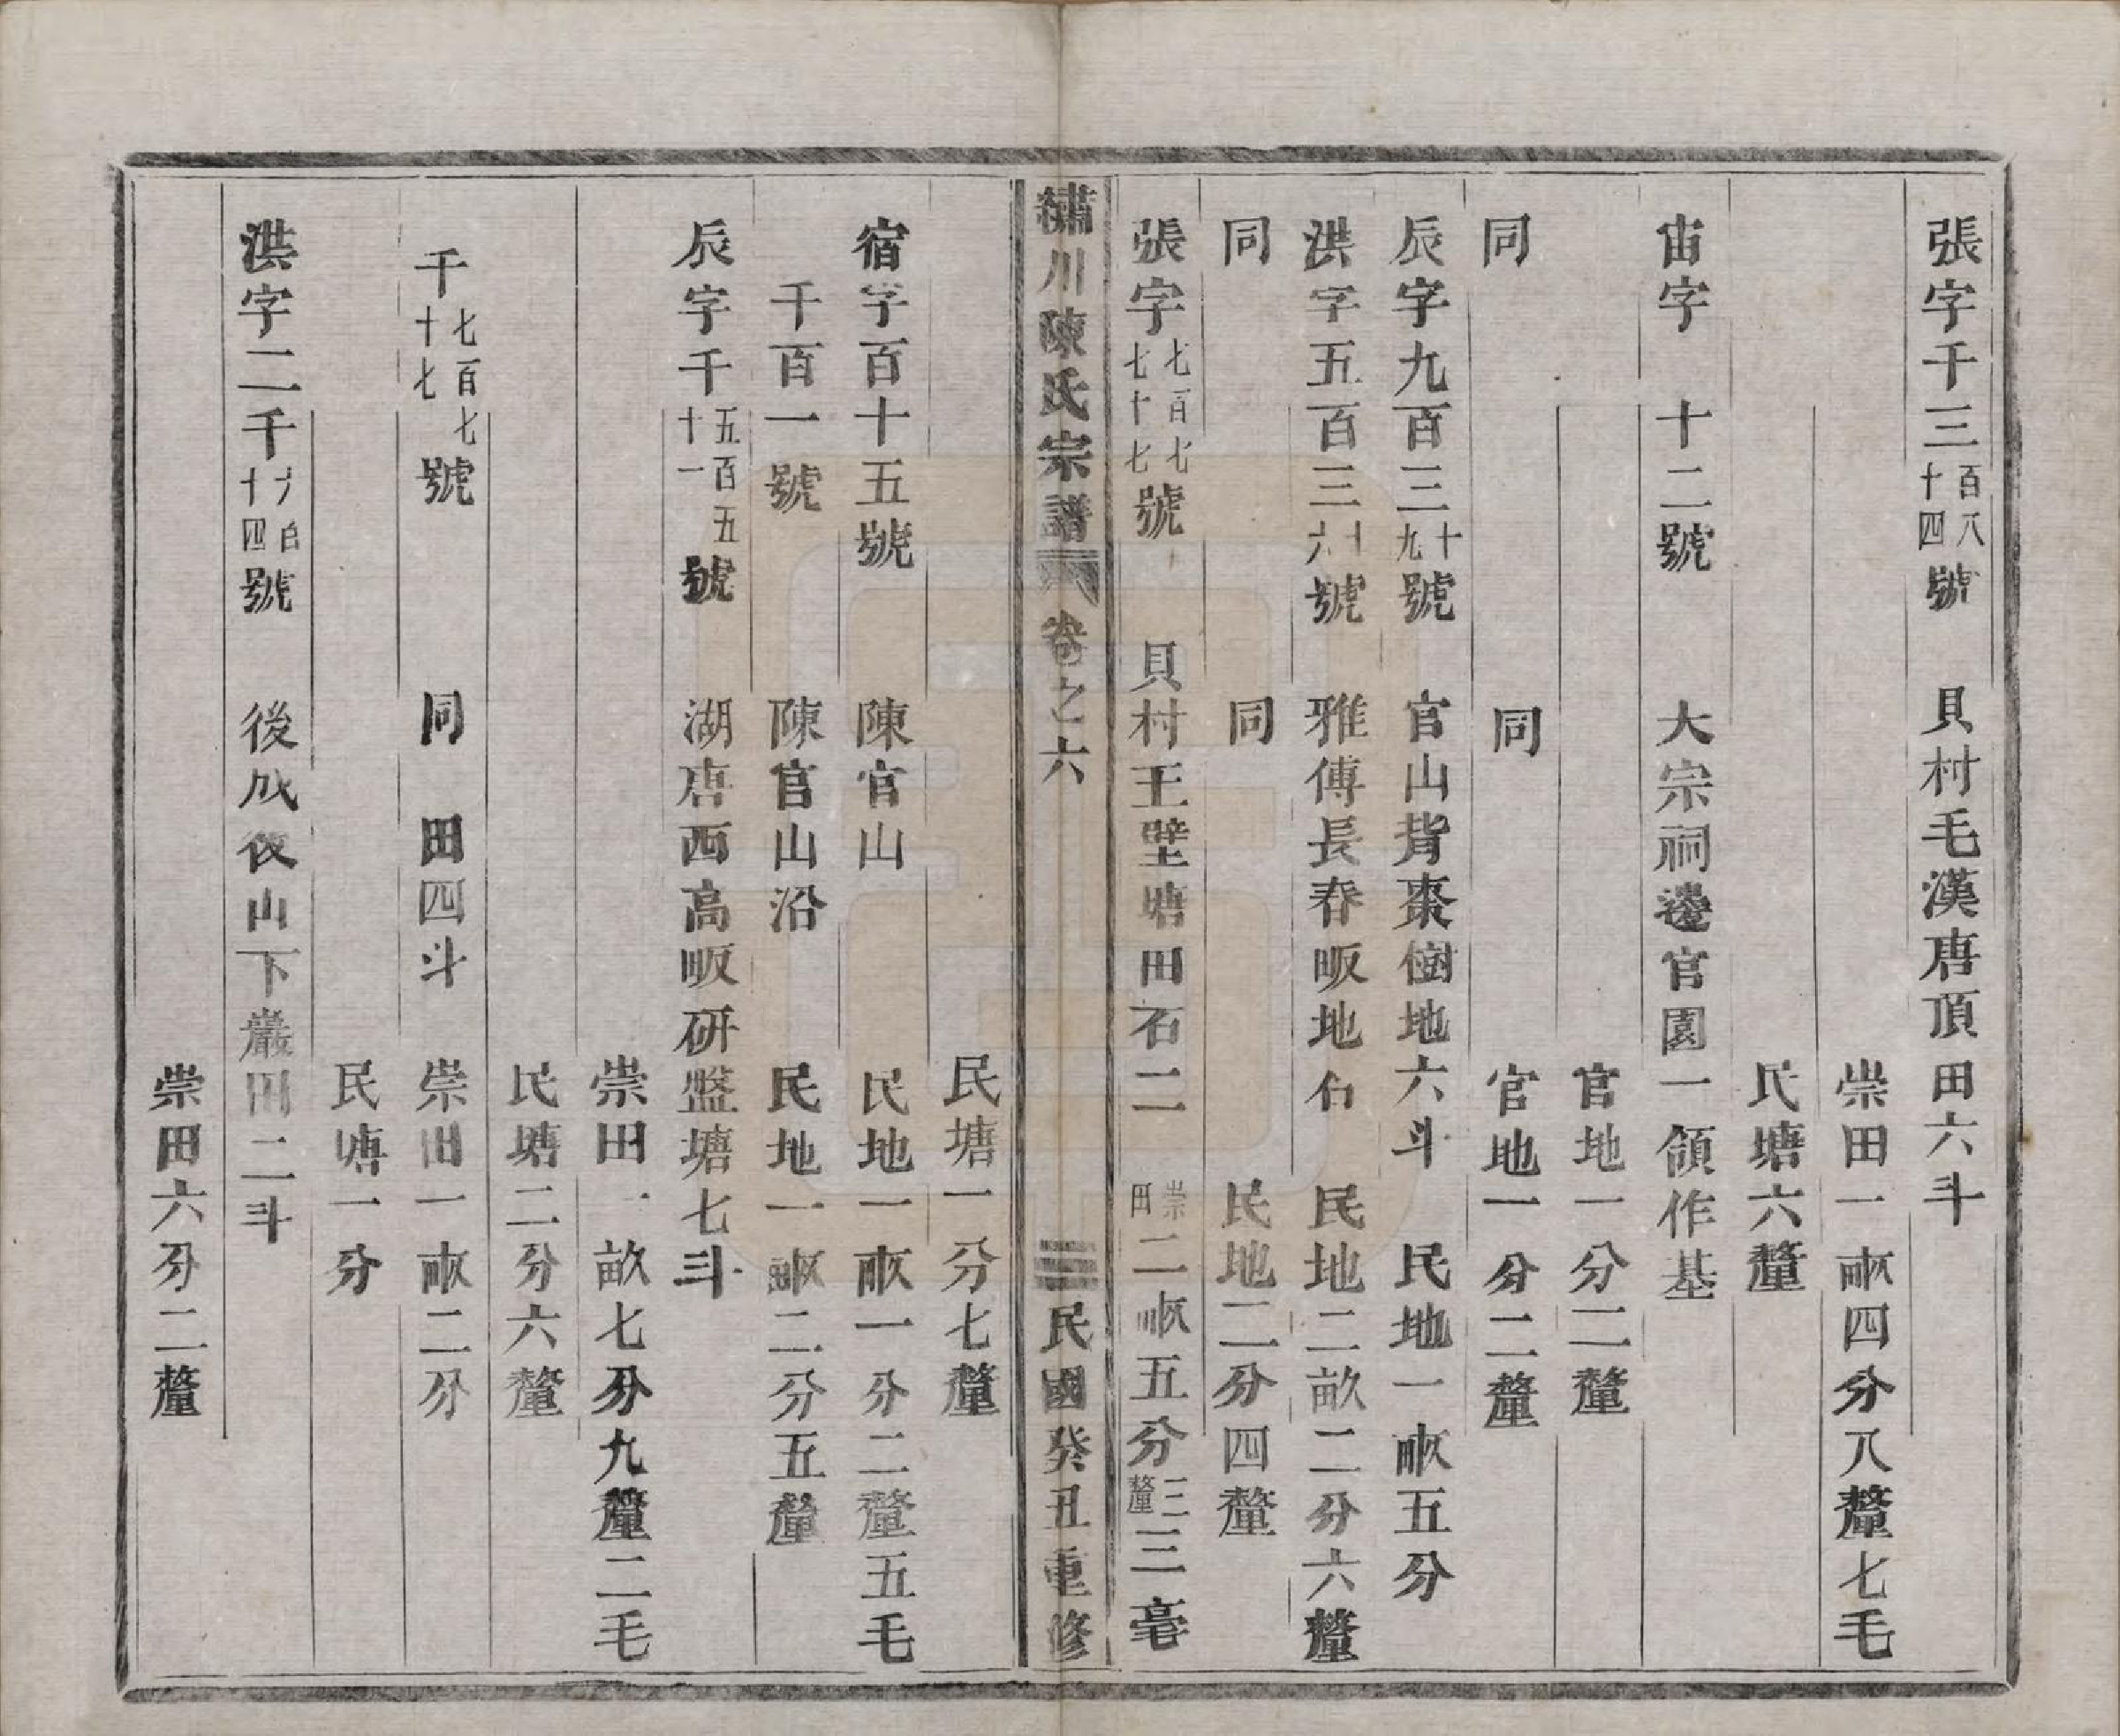 張字千三百八十四號　貝村毛漢唐頂田六斗
崇田一畝四分八釐七毛
民塘六釐
宙字　十二號　大宗祠邊官園一領作基
官地一分二釐
同　同　官地一分二釐
辰字九百三十九號　官山背棗樹地六斗　民地一畝五分
洪字五百三十六號　雅傅長春畈地石　民地二畝二分六釐
同　同　民地二分四釐
張字七百七七十七號　貝村王壁塘田石二　崇田二畝五分三釐三毫
繡川陳氏宗譜　卷之六　三　民國癸丑重修
民塘一分七釐
宿字百十五號　陳官山　民地一畝一分二釐五毛
千百一號　陳官山沿　民地一畝二分五釐
辰字千五百五十一號　湖唐西高畈研盤塘七斗
崇田一畝七分九釐二毛
民塘二分六釐
千七百七十七七號　同　田四斗　崇田一畝二分
民塘一分
洪字二千六百十四號　後成後山下巖田二斗
崇田六分二釐